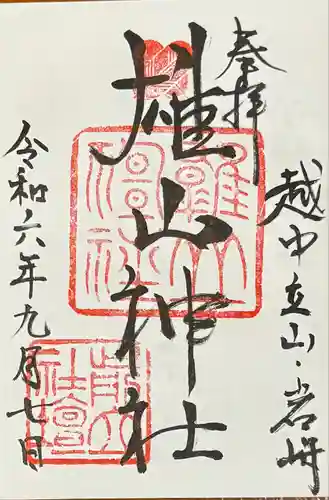 奉拝
越中立山・岩峅
雄山神社
令和六年九月七日